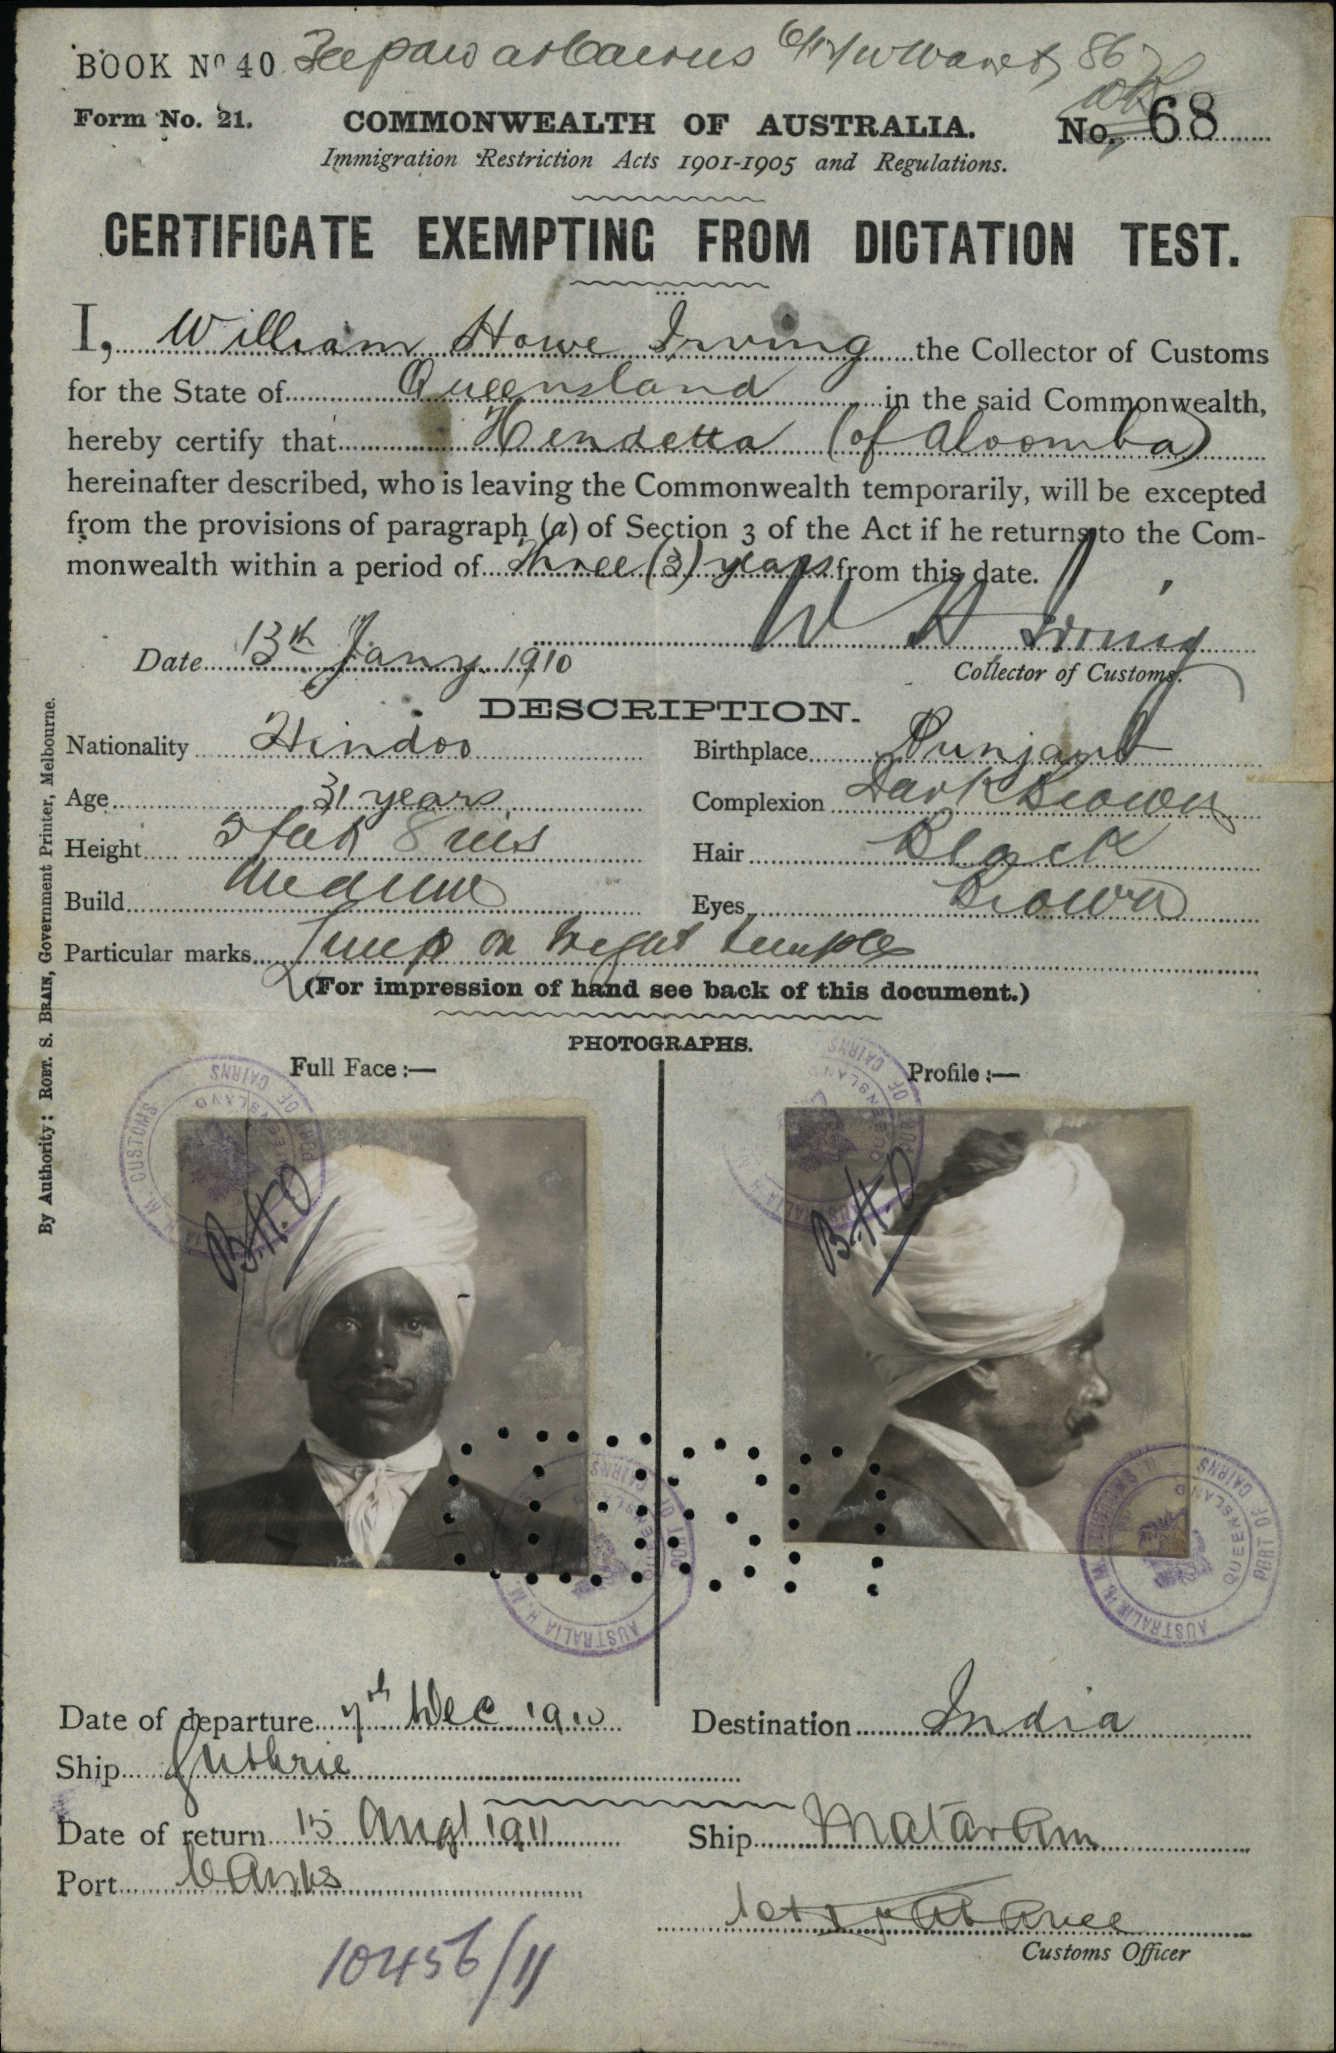 BOOK No 40 Fee paid at Cairns 86
Form No. 21. COMMONWEALTH OF AUSTRALIA. No. 68
Immigration Restriction Acts 1901-1905 and Regulations.
CERTIFICATE EXEMPTING FROM DICTATION TEST.
I, William Howe Irving the Collector of Customs
for the State of Queensland in the said Commonwealth,
hereby certify that Hendetta (of Aloomba)
hereinafter described, who is leaving the Commonwealth temporarily, will be excepted
from the provisions of paragraph (a) of Section 3 of the Act if he returns to the Com-
monwealth within a period of three (3) years from this date.
W H Irving
Date 13th Jany. 1910 Collector of Customs.
DESCRIPTION.
Nationality Hindoo Birthplace Punjaub
Age 31 years Complexion Dark Brown
Height 5 feet 8 ins Hair Black
Build Medium Eyes Brown
Particular marks Lump on Right temple
(For impression of hand see back of this document.)
PHOTOGRAPHS.
Full Face:— Profile:—
H. M. CUSTOMS PORT OF CAIRNS QUEENSLAND
AUSTRALIA H. M. PORT OF CAIRNS QUEENSLAND
B.H.O B.H.O
AUSTRALIA H. M. PORT OF CAIRNS QUEENSLAND
AUSTRALIA H. M. CUSTOMS PORT OF CAIRNS QUEENSLAND
Date of departure 7th Dec 1910 Destination India
Ship Guthrie
Date of return 15 Augt 1911 Ship Mataram
Port Cairns
Customs Officer
10456/11
By Authority: ROBT. S. BRAIN, Government Printer, Melbourne.